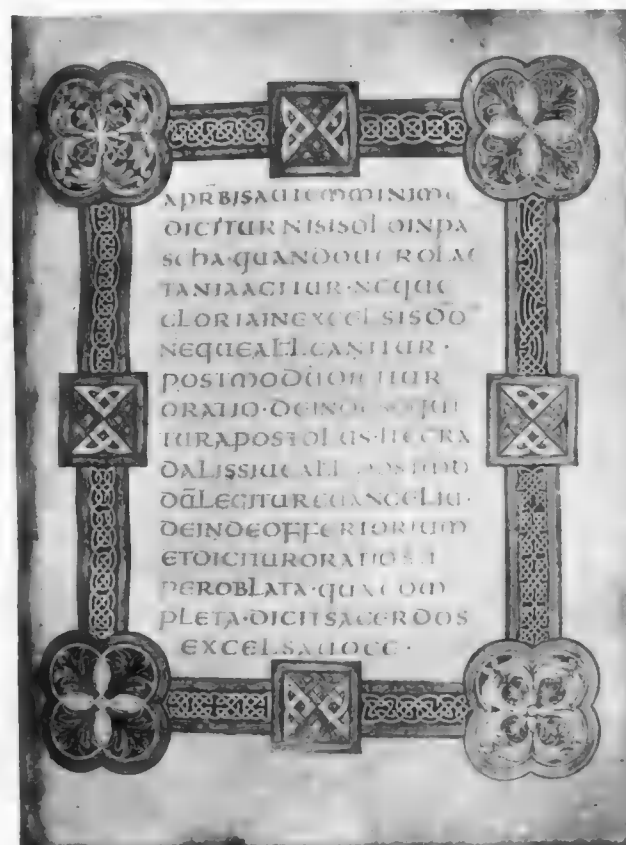 APRB̄ISAUTEMMINIME
DICITURNISISOLOINPA
SCHA·QUANDOUEROLAE
TANIAAGITUR·NEQUE
GLORIAINEXCELSISDŌ
NEQUEALL̄CANITUR·
POSTMODŪDICITUR
ORATIO·DEINDESEQUI
TURAPOSTOLUS·
DALISSIUEALL̄
DĀLEGITUREUANGELIU·
DEINDEOFFERTORIUM
ETDICITURORATIOSU
PEROBLATA·QUACOM
PLETA·DICITSACERDOS
EXCELSAUOCE·